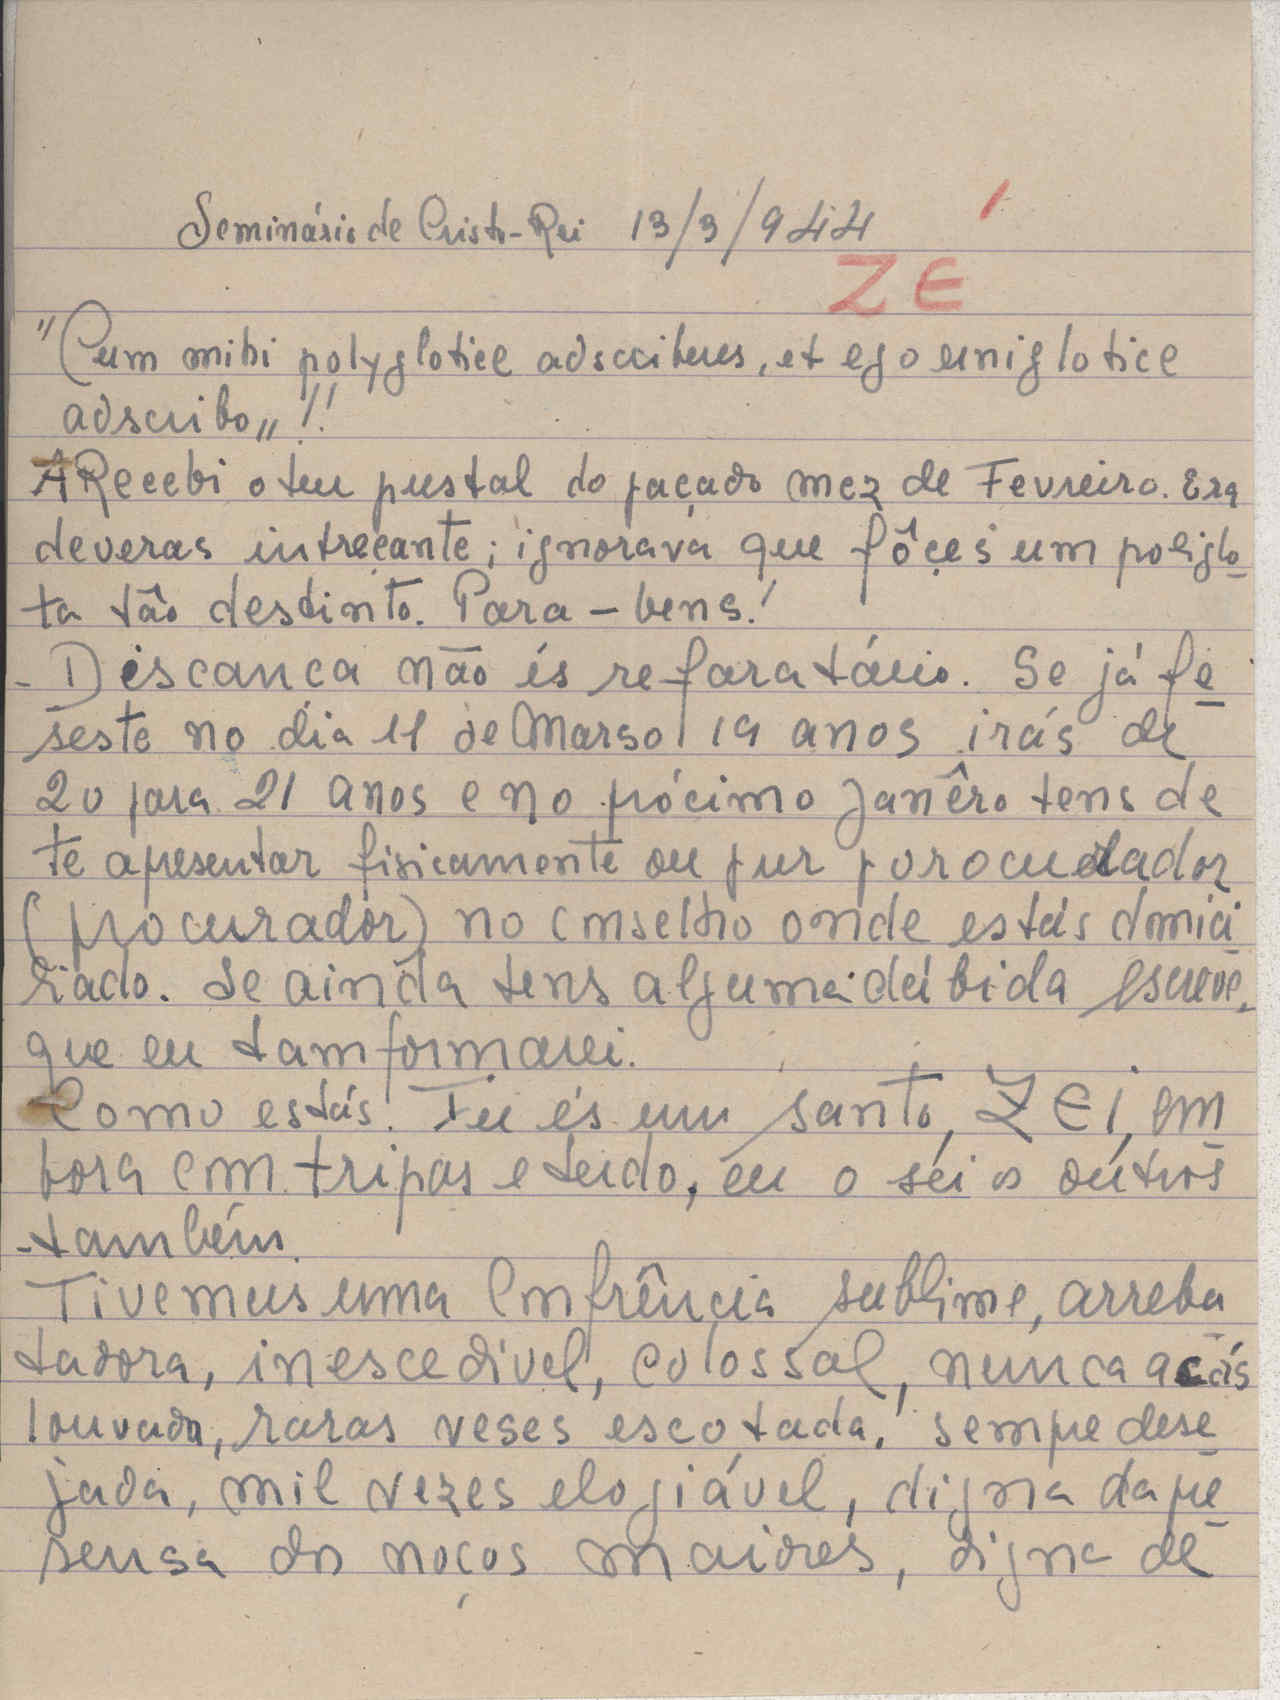 Seminário de Cristo-Rei 13/3/944
ZE
"Cum mihi polyglotice adscribers, et ego uniglotice
adscribo„!!
ARecebi o teu pustal do paçado mez de Fevreiro. Era
deveras intreçante; ignorava que fôçes um poliglo-
ta tão destinto. Para-bens!
- Discanca não és refaratário. Se já fe-
seste no dia 11 de Marso 19 anos irás de
20 para 21 anos e no prócimo Janêro tens de
te apresentar fisicamente ou pur porocurador
(procurador) no Conselho onde estás domici-
liado. Se ainda tens alguma débida escreve,
que eu tamformarei.
Como estás. Tu és um santo, ZEi, em-
bora com tripas e tudo, eu o séi os óutros
-também.
Tivemus uma Confrência sublime, arreba-
tadora, inescedível, colossal, nunca acás
louvada, raras veses escotada, sempre dese-
jada, mil vezes elogiável, digna da pre-
sensa dos noços maiores, digna de